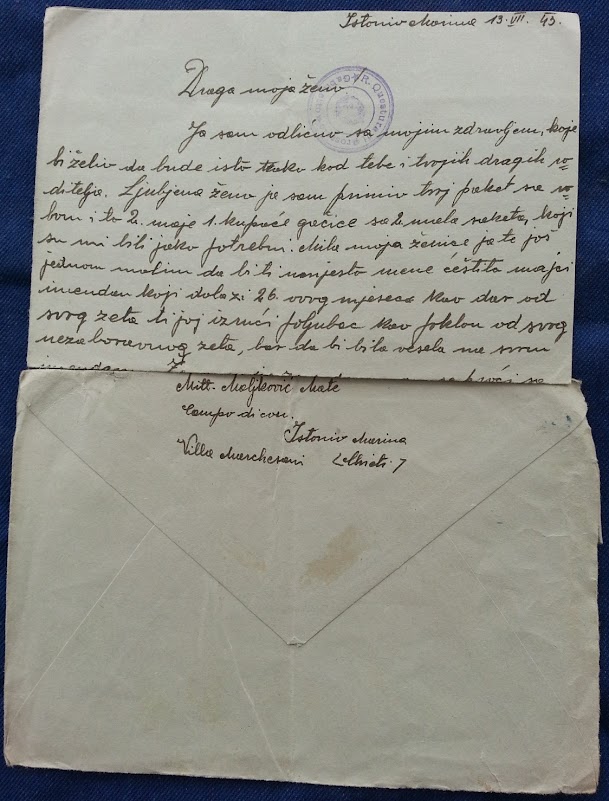 Istonio Marina 13. VII. 43.
Draga moja ženo
Ja sam odlično sa mojim zdravljem, koje
bi želio da bude isto tako kod tebe i tvojih dragih ro-
ditelja. Ljubljena ženo ja sam primio tvoj paket sa ro-
bom i to 2. maje 1. kupaće gaćice sa 2. mala saketa, koji
su mi bili jako potrebni. Mila moja ženice ja te još
jednom molim da bi ti namjesto mene čestita majci
imendan koji dolazi 26. ovog mjeseca kao dar od
svog zeta ti joj izruči poljubac kao poklon od svog
nezaboravnog zeta, bar da bi bila vesela na svom
imendan
Mitt. Maljković Mate
Campo di con.
Istonio Marina
Villa Marchesani (Chieti)